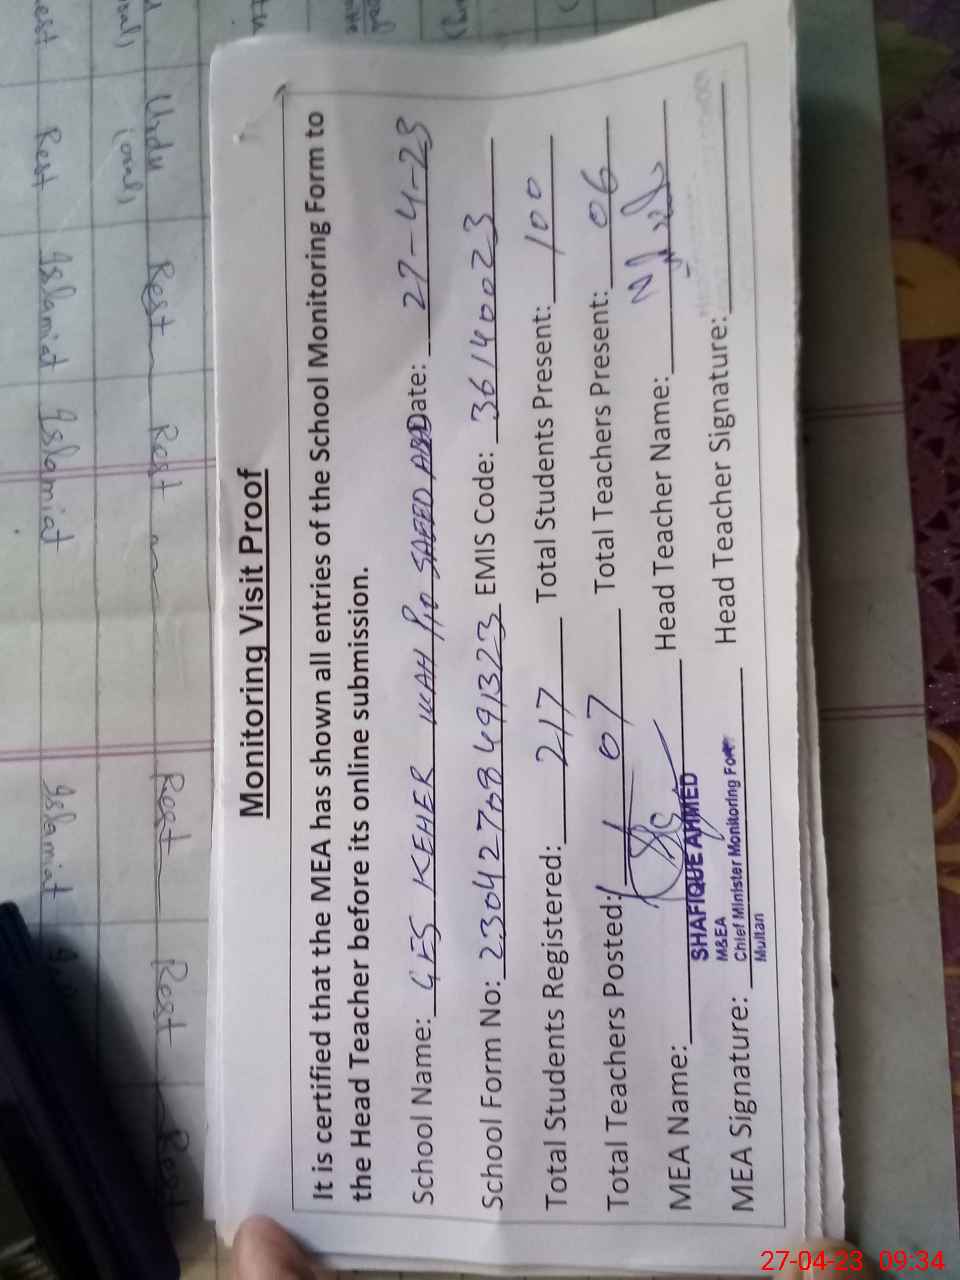 Monitoring Visit Proof
It is certified that the MEA has shown all entries of the School Monitoring Form to
the Head Teacher before its online submission.
School Name: GES KEHER WAH P/O SAEED ABD Date: 27-4-23
School Form No: 2304276849 1323 EMIS Code: 36140023
Total Students Registered: 217 Total Students Present: 100
Total Teachers Posted: 07 Total Teachers Present: 06
MEA Name: Head Teacher Name:
SHAFIQUE AHMED
M&EA
MEA Signature: Head Teacher Signature:
Chief Minister Monitoring Force
Multan
Urdu
(oral)
Rest
Rest
Rest
Rest
Rest
Rest
Islamiat
Islamiat
Islamiat
27-04-23 09:34